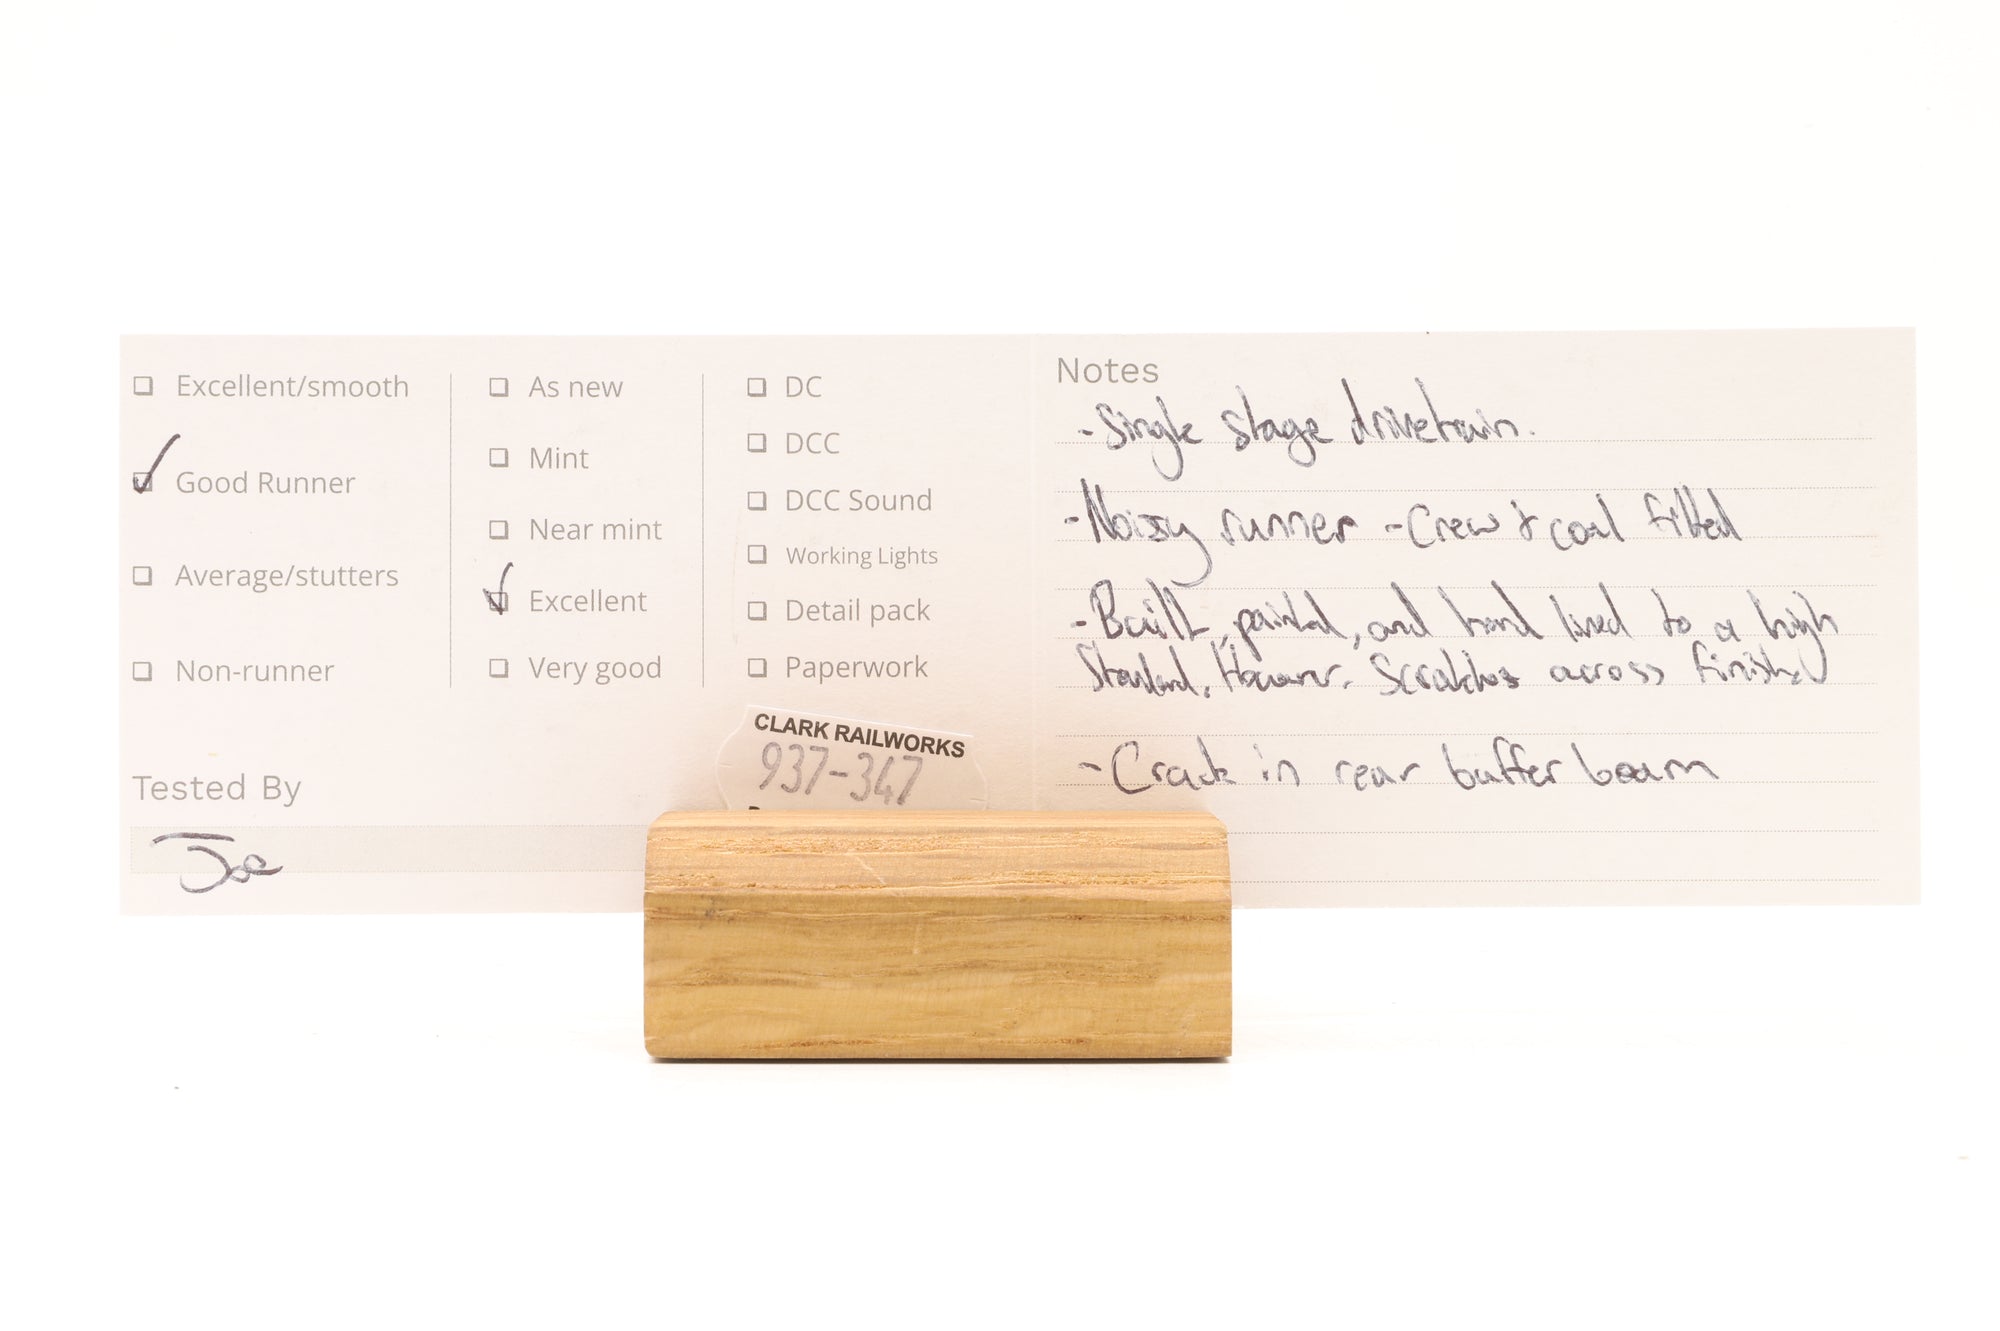 Excellent/smooth
Good Runner
Average/stutters
Non-runner
As new
Mint
Near mint
Excellent
Very good
DC
DCC
DCC Sound
Working Lights
Detail pack
Paperwork
Tested By
Joe
CLARK RAILWORKS
937-347
Notes
- Single stage drivetrain.
- Noisy runner - Crew & coal fitted
- Built, painted, and hand lined to a high
Standard. However. Scratches across finish.
- Crack in rear buffer beam